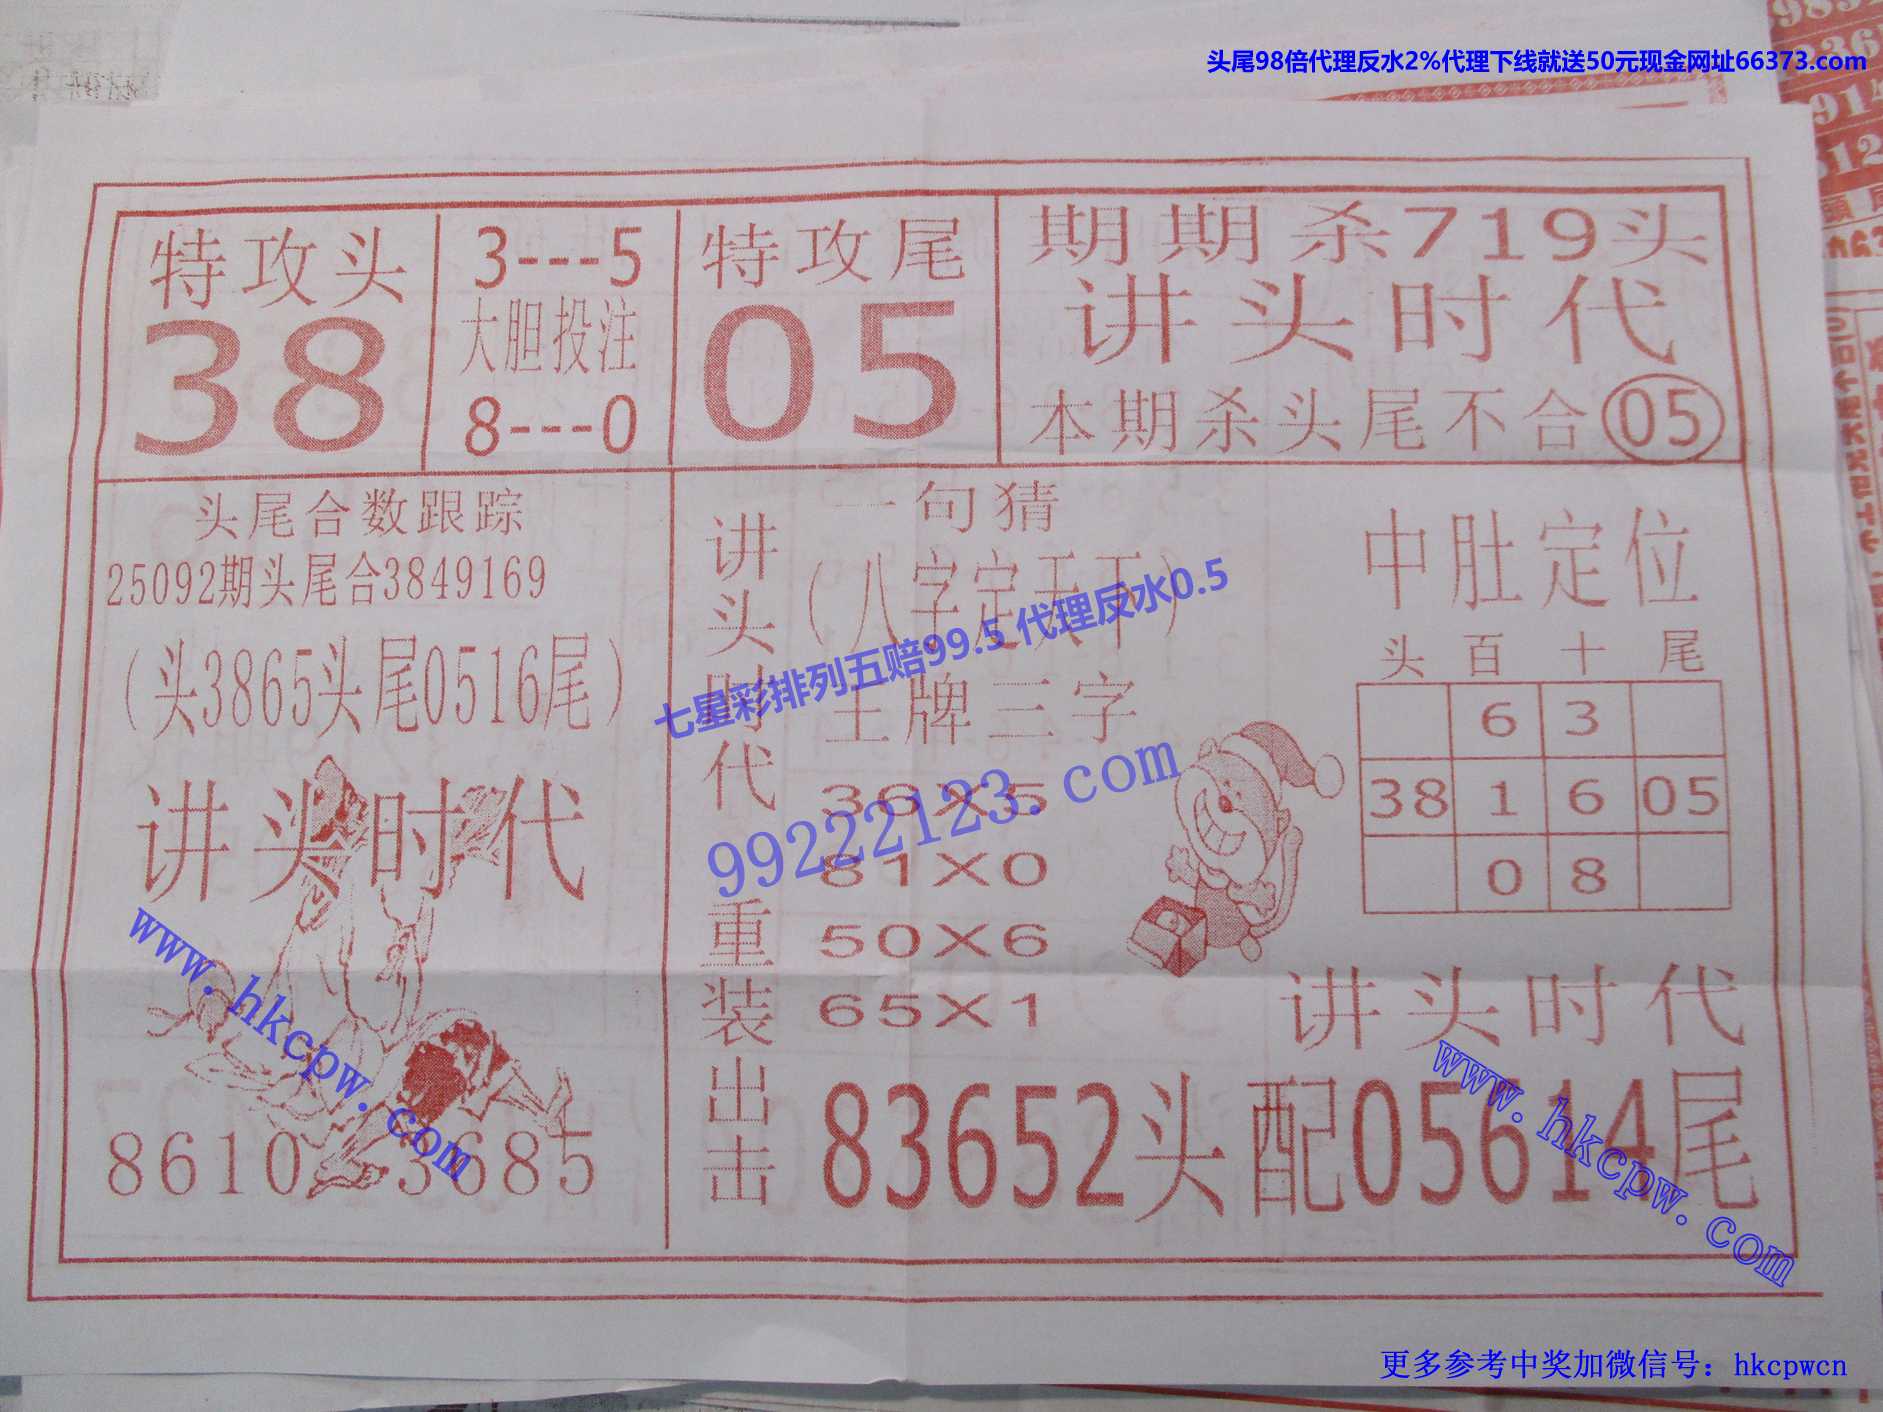 头尾98倍代理反水2%代理下线就送50元现金网址66373.com
特攻头
38
3---5
大胆投注
8---0
特攻尾
05
期期杀719头
讲头时代
本期杀头尾不合05
头尾合数跟踪
25092期头尾合3849169
（头3865头尾0516尾）
讲头时代
www.hkcpw.com
8610 3685
讲头时代
重装出击
一句猜
（八字定天下）
七星彩排列五赔99.5 代理反水0.5
王牌三字
99222123.com
36X5
81X0
50X6
65X1
中肚定位
头 百 十 尾
6 3
38 1 6 05
0 8
讲头时代
83652头配05614尾
www.hkcpw.com
更多参考中奖加微信号：hkcpwcn